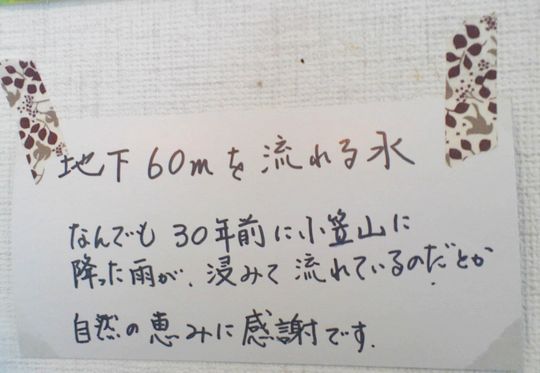 地下60mを流れる水
なんでも30年前に小笠山に
降った雨が、浸みて流れているのだとか
自然の恵みに感謝です.